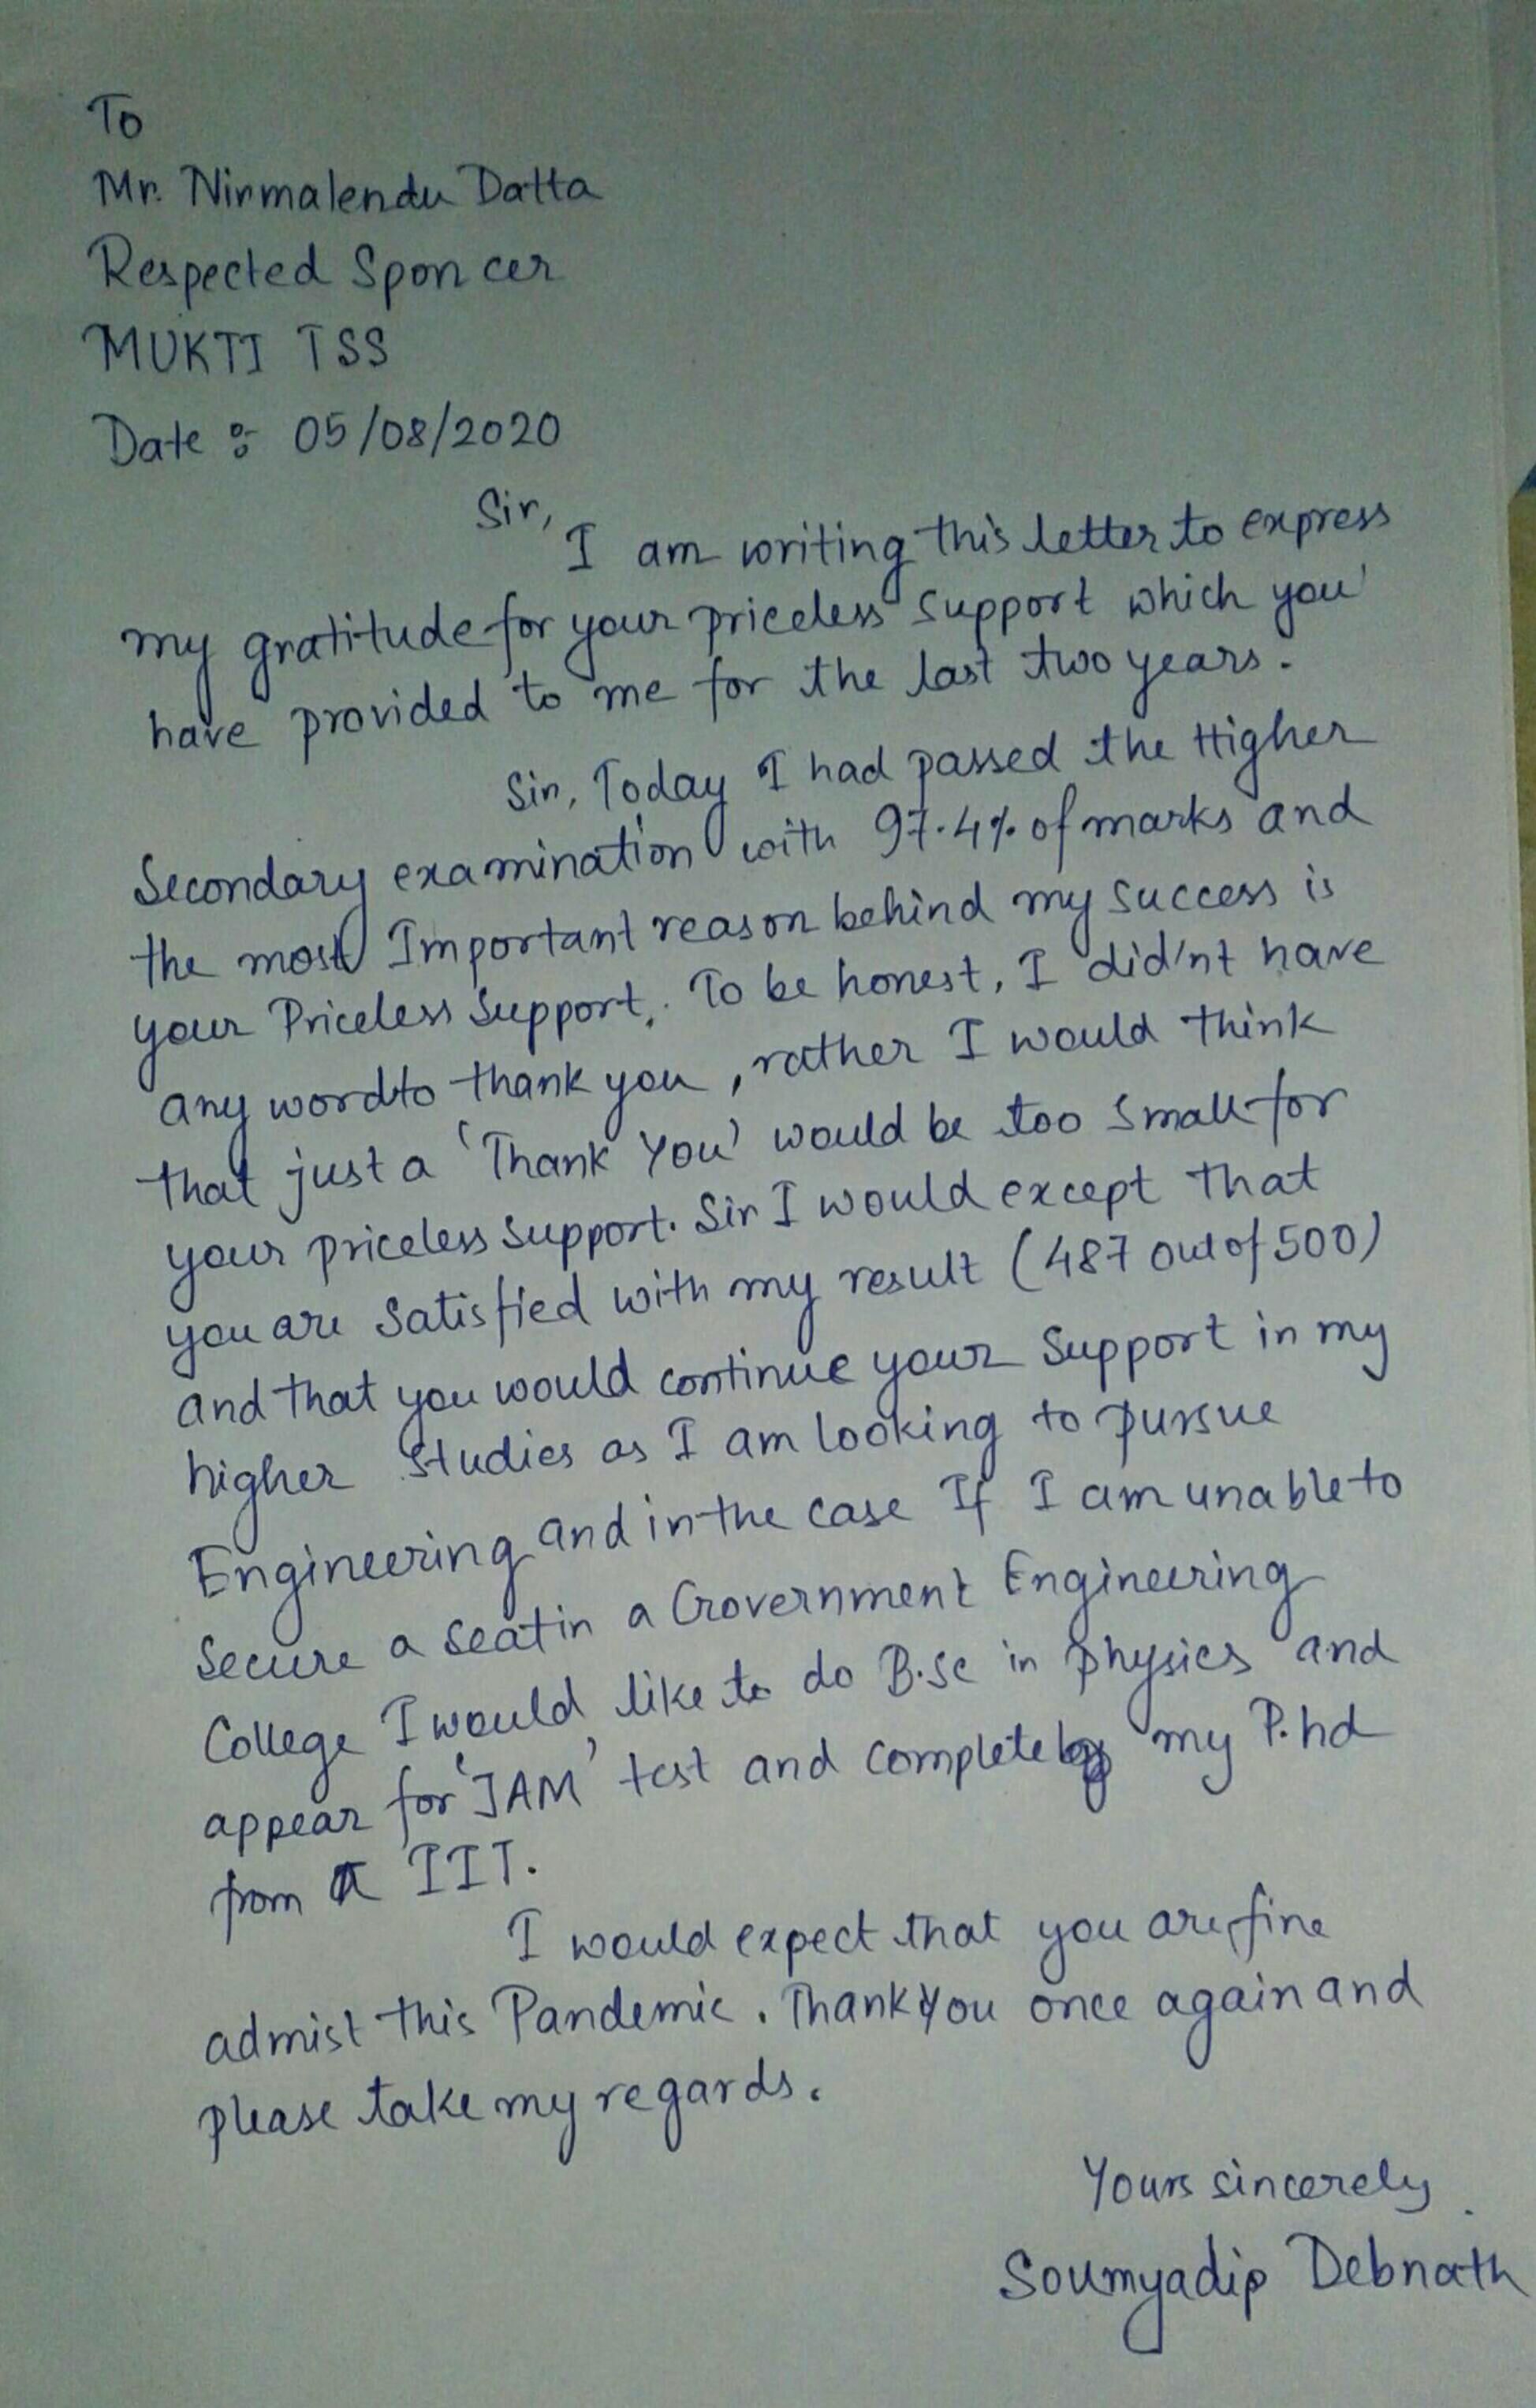 To
Mr. Nirmalendu Datta
Respected Sponcer
MUKTI TSS
Date : 05/08/2020
Sir,
I am writing this letter to express
my gratitude for your priceless support which you
have provided to me for the last two years.
Sir, Today I had passed the Higher
Secondary examination with 97.4% of marks and
the most Important reason behind my success is
your Priceless Support. To be honest, I did'nt have
any word to thank you, rather I would think
that just a 'Thank You' would be too small for
your priceless support. Sir I would except that
you are satisfied with my result (487 out of 500)
and that you would continue your support in my
higher studies as I am looking to pursue
Engineering and in the case If I am unable to
secure a seat in a Government Engineering
College I would like to do B.Sc in physics and
appear for 'JAM' test and complete my P.hd
from a IIT.
I would expect that you are fine
admist this Pandemic. Thank You once again and
please take my regards.
Yours sincerely
Soumyadip Debnath